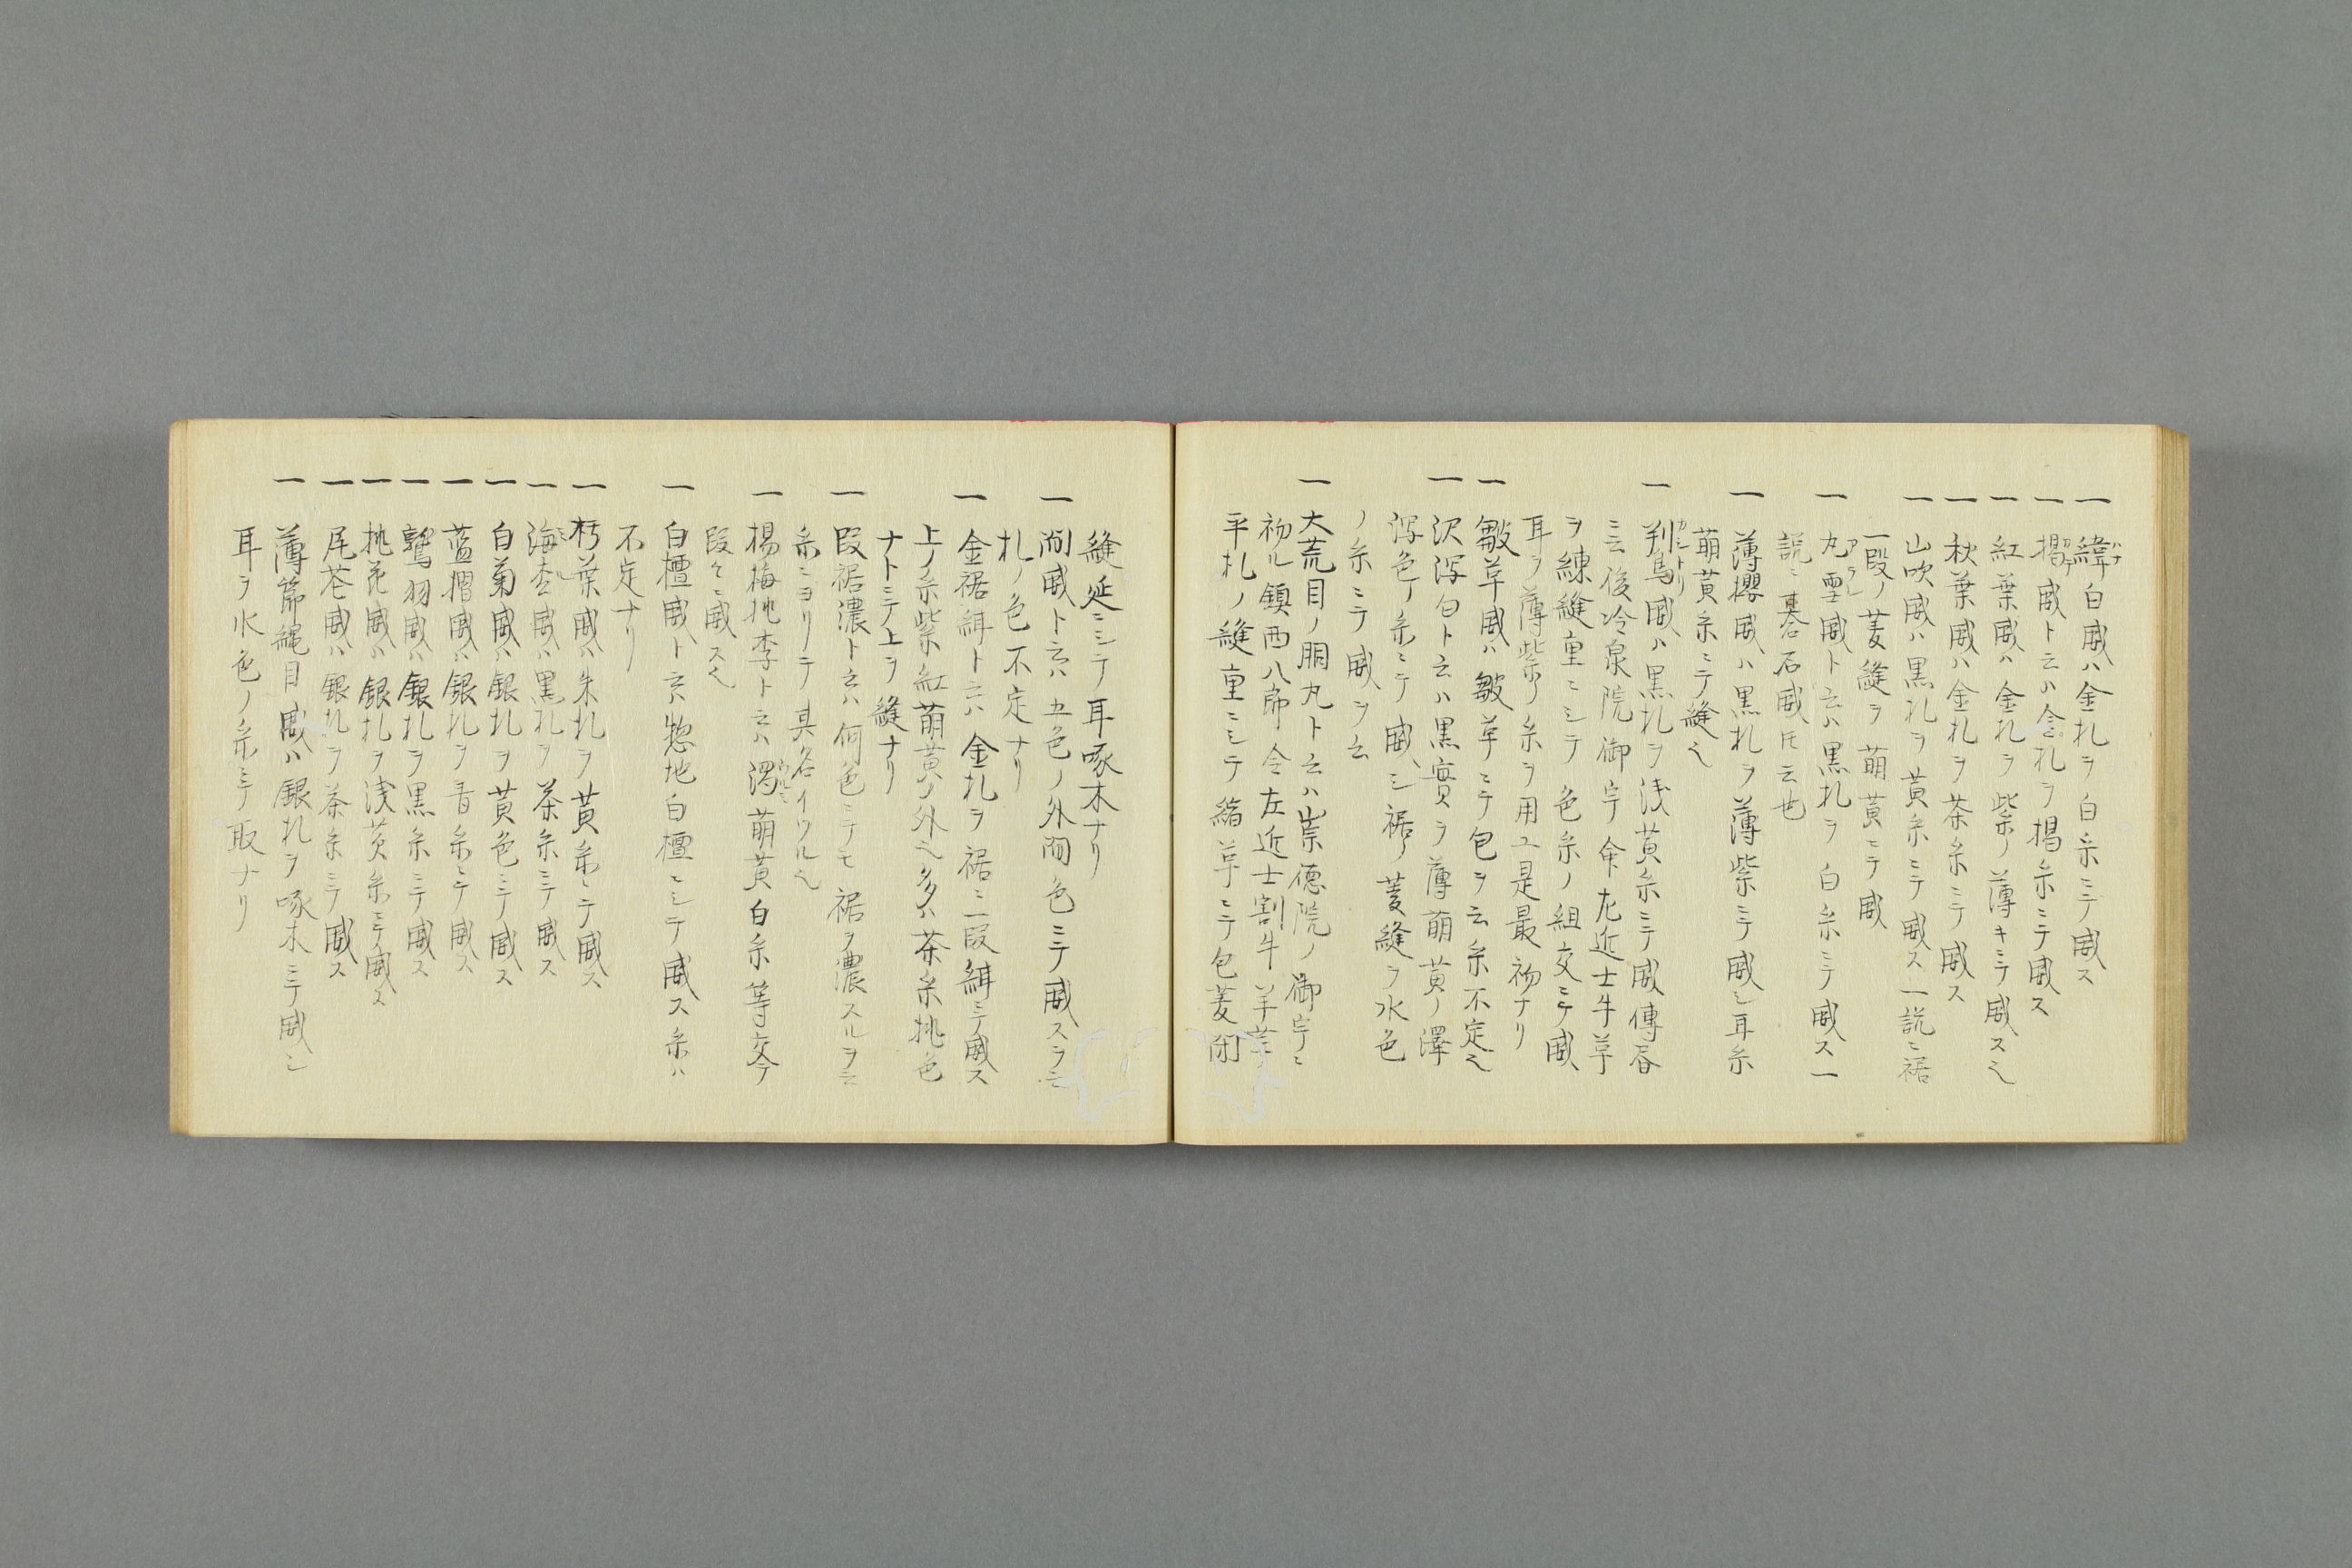 一 緯白威ハ金札ヲ白糸ニテ威ス
一 搨威ト云ハ金札ヲ搨糸ニテ威ス
一 紅葉威ハ金札ヲ紫ノ薄キニテ威ス也
一 秋葉威ハ金札ヲ茶糸ニテ威ス
一 山吹威ハ黒札ヲ黄糸ニテ威ス一説ニ裾
一段ノ菱縫ヲ萌黄ニテ威
一 丸雪威ト云ハ黒札ヲ白糸ニテ威ス一
説ニ碁石威トモ云也
一 薄櫻威ハ黒札ヲ薄紫ニテ威シ耳糸
萌黄糸ニテ縫也
一 鳥威ハ黒札ヲ浅黄糸ニテ威傳
ニ云後冷泉院御宇左近士牛革
ヲ練縫重ニシテ色糸ノ組交ニテ威
耳ヲ薄紫ノ糸ヲ用ユ是最初ナリ
一 皺革威ハ皺革ニテ包ヲ云糸不定也
一 沢泻匂ト云ハ黒實ヲ薄萌黄ノ澤
泻色ノ糸ニテ威シ裾ノ菱縫ヲ水色
ノ糸ニテ威ヲ云
一 大荒目ノ胴丸ト云ハ崇徳院ノ御宇ニ
初ル鎮西八郎令左近士割牛
平札ノ縫重ニシテ革ニテ包菱閉
縫延ニシテ耳啄木ナリ
一 間威ト云ハ五色ノ外間色ニテ威スヲ云
札ノ色不定ナリ
一 金裾緝ト云ハ金札ヲ裾ニ一段緝ニテ威ス
上ノ糸紫紅萌黄ノ外也多ハ茶糸桃色
ナトニテ上ヲ縫ナリ
一 段裾濃ト云ハ何色ニテモ裾ヲ濃スルヲ云
糸ニヨリテ其名イツル也
一 楊梅桃李ト云ハ濁萌黄白糸等交
段々ニ威ス也
一 白檀威ト云ハ惣地白檀ニシテ威ス糸ハ
不定ナリ
一 朽葉威ハ朱札ヲ黄糸ニテ威ス
一 海松威ハ黒札ヲ茶糸ニテ威ス
一 白菊威ハ銀札ヲ黄色ニテ威ス
一 藍摺威ハ銀札ヲ青糸ニテ威ス
一 鷲羽威ハ銀札ヲ黒糸ニテ威ス
一 桃花威ハ銀札ヲ浅黄糸ニテ威ス
一 尾花威ハ銀札ヲ茶糸ニテ威ス
一 薄節縄目威ハ銀札ヲ啄木ニテ威シ
耳ヲ水色ノ糸ニテ取ナリ